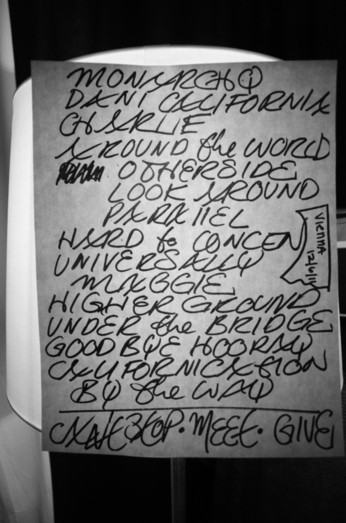 MONARCHO
DANI CALIFORNIA
CHARLIE
AROUND the WORLD
OTHERSIDE
LOOK AROUND
PARAllEL
HARD to CONCEN
UNIVERSALLY
MAGGIE
HIGHER GROUND
UNDER the BRIDGE
GOODBYE HOORAY
CALIFORNICATION
BY the WAY
MEET. GIVE
VIENNA